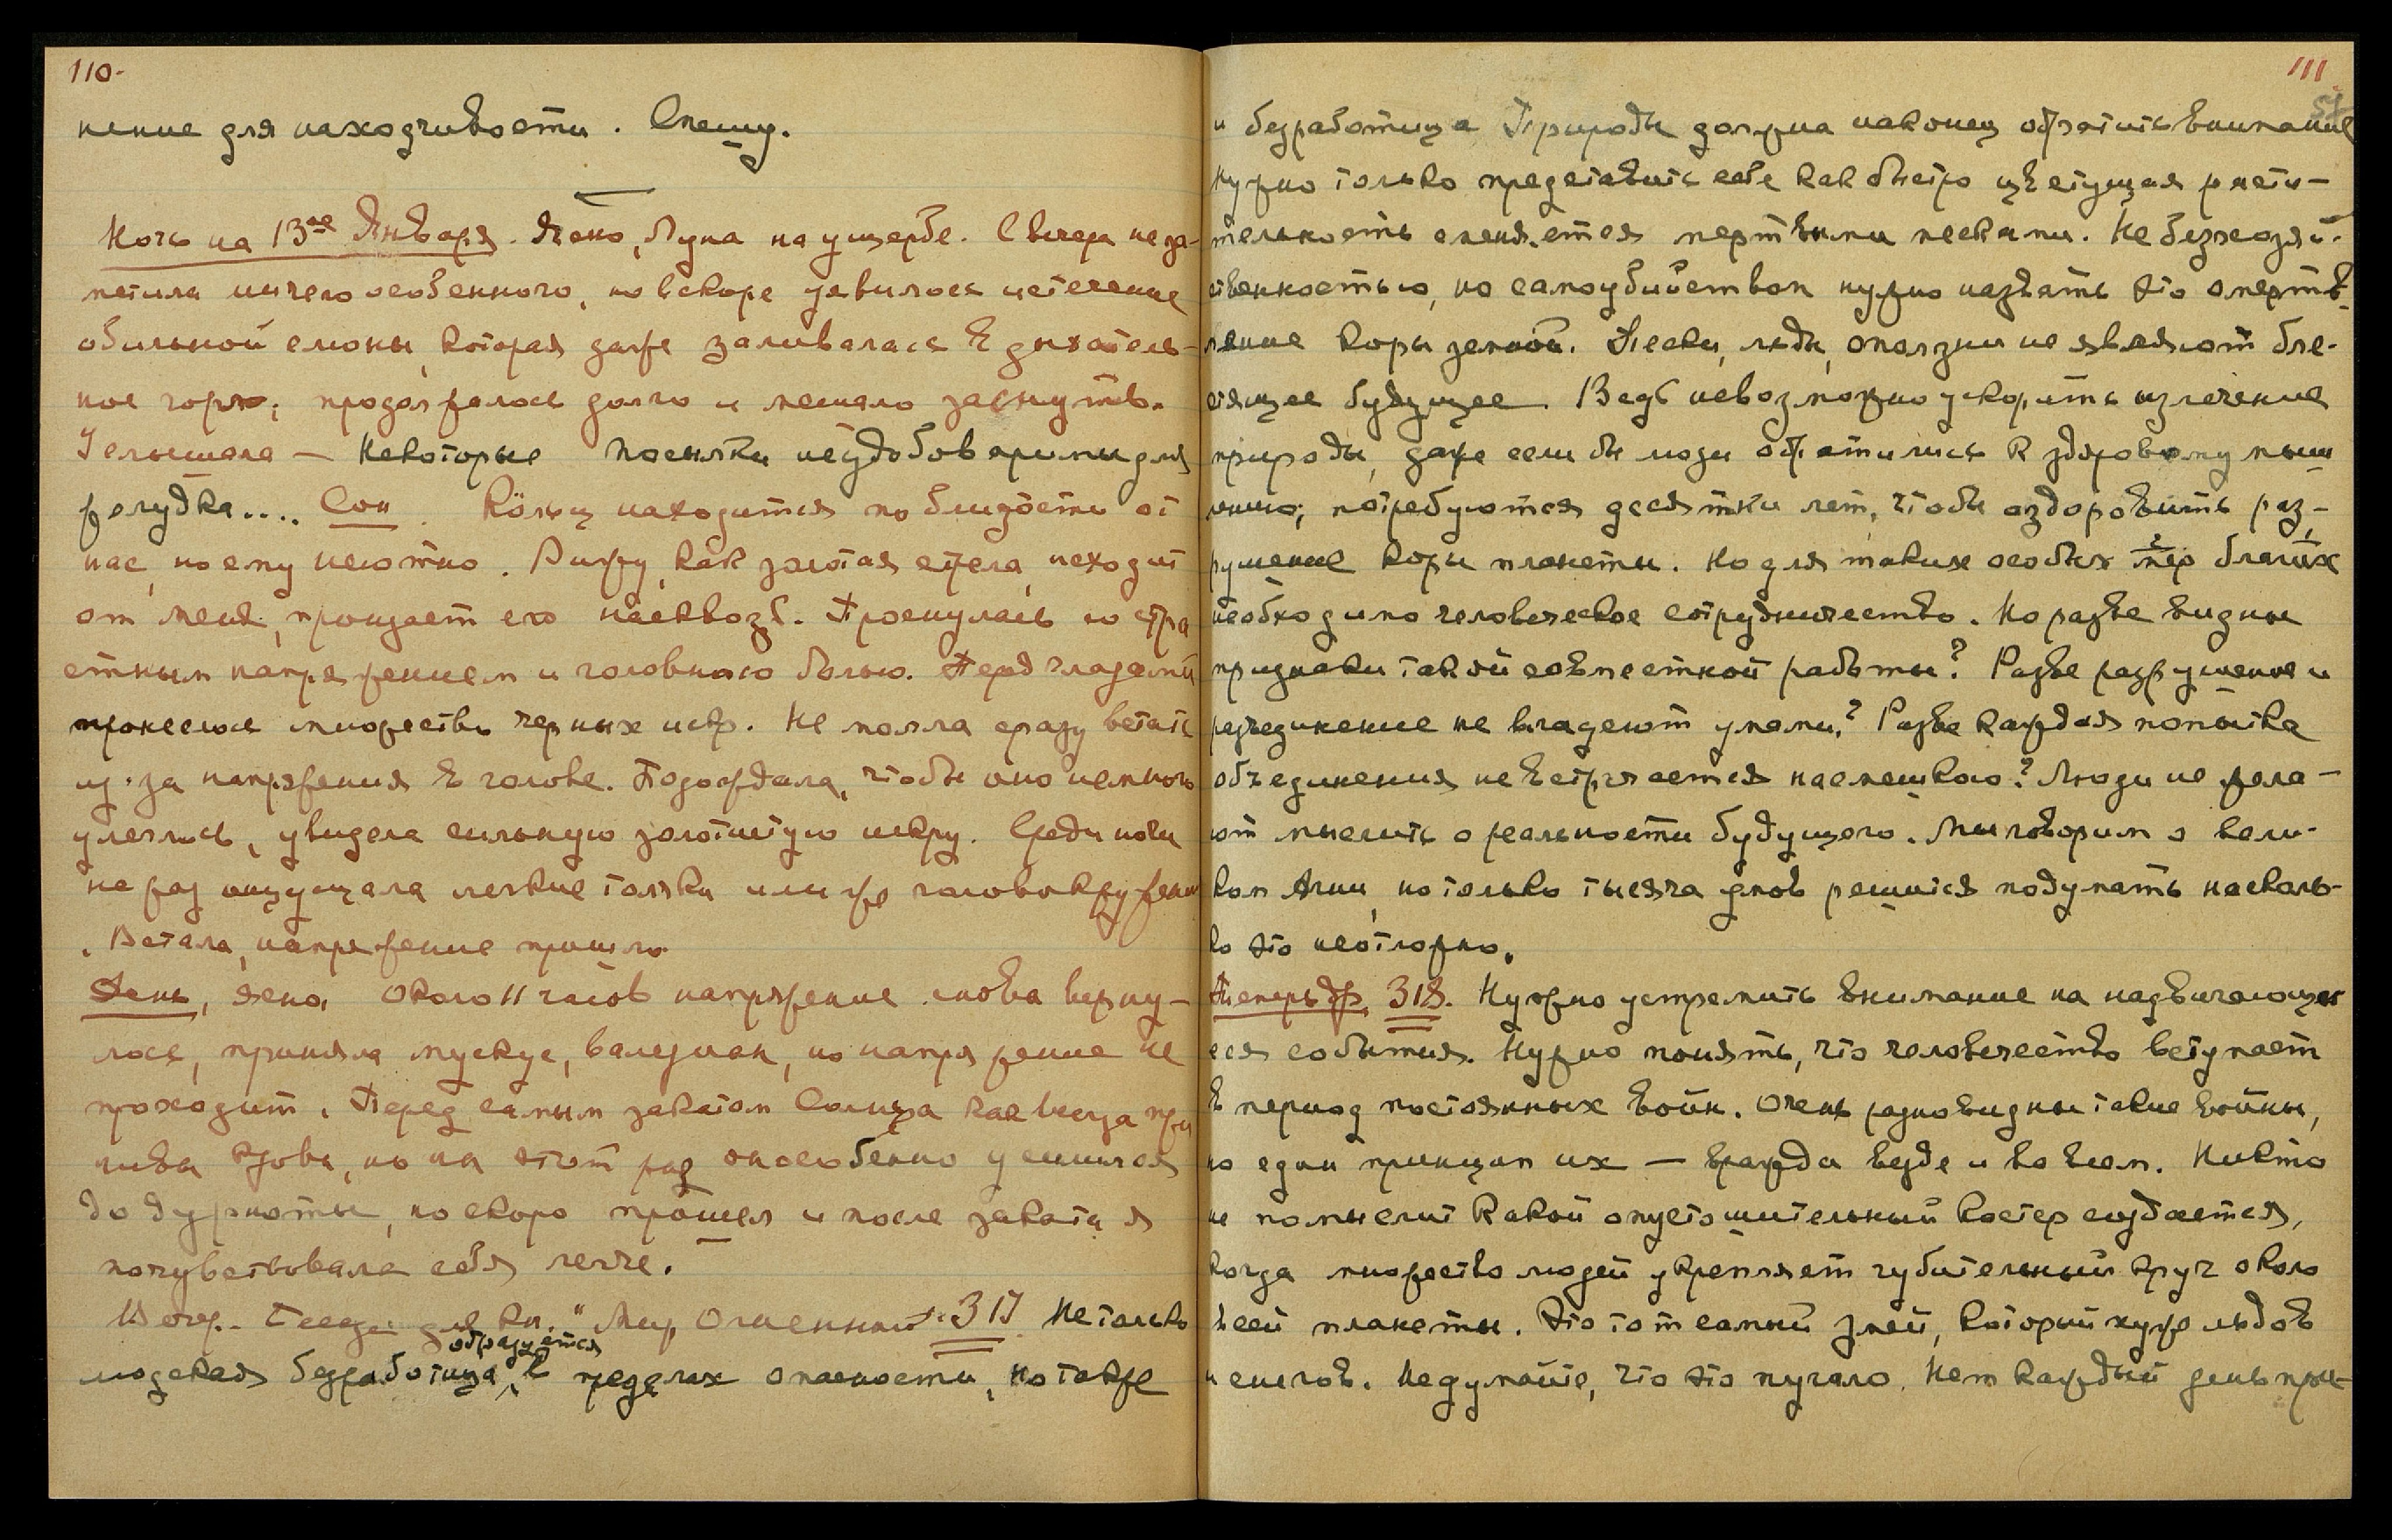 110-
нение для находчивости. Спешу.
Ночь на 13ое Января. Ясно, Луна на ущербе. С вечера не за-
метила ничего особенного, но вскоре явилось истечение
обильной слюны, которая даже заливалась в дыхатель-
ное горло; продолжалось долго и мешало заснуть.
Услышала — Некоторые посылки неудобоваримы для
желудка.... Сон. находится по близости от
нас, но ему неютно. Вижу, как золотая стрела исходит
от меня, пронзает его насквозь. Проснулась со стра
стным напряжением и головною болью. Перед глазами
пронеслось множество черных искр. Не могла сразу встать
из-за напряжения в голове. Подождала, чтобы оно немного
улеглось, увидела сильную золотистую искру. Среди ночи
не раз ощущала легкие толчки или же головокружени
. Встала, напряжение прошло.
День, ясно. Около 11 часов напряжение снова верну-
лось, приняла мускус, валериан, но напряжение не
проходит. Перед самым закатом Солнца как всегда при
ливы крови, но на этот раз особенно усилился
до дурноты, но скоро прошел и после заката я
почувствовала себя легче.
Вечер. Беседа для кн. "Мир Огненный". 317 Не только
образуется
людская безработица, в пределах опасности, но также
111
и безработица Природы должна наконец обратить внимание
Нужно только представить себе как быстро цветущая расти-
тельность сменяется мертвыми песками. Не безхозяй-
ственностью, но самоубийством нужно назвать это омертв-
ление коры земной. Пески, льды, оползни не являют бле-
стящее будущее. Ведь невозможно ускорить излечение
природы, даже если бы люди обратились к здоровому мыш
лению; потребуются десятки лет, чтобы оздоровить раз-
рушение коры планеты. Но для таких особых мер благих
необходимо человеческое сотрудничество. Но разве видны
признаки такой совместной работы? Разве разрушение и
разъединение не владеют умами? Разве каждая попытка
объединения не встречается насмешкою? Люди не жела-
ют мыслить о реальности будущего. Мы говорим о вели-
ком Агни, но только тысяча умов решится подумать насколь-
ко это неотложно.
Теперь др. 318. Нужно устремить внимание на надвигающи
еся события. Нужно понять, что человечество вступает
в период постоянных войн. Очень разновидны такие войны,
но един принцип их — вражда везде и во всем. Никто
не помыслит какой опустошительный костер создается,
когда множество людей укрепляет губительный круг около
всей планеты. Это тот самый змей, который хуже льдов
и снегов. Не думайте, что это пугало. Нет каждый день при-